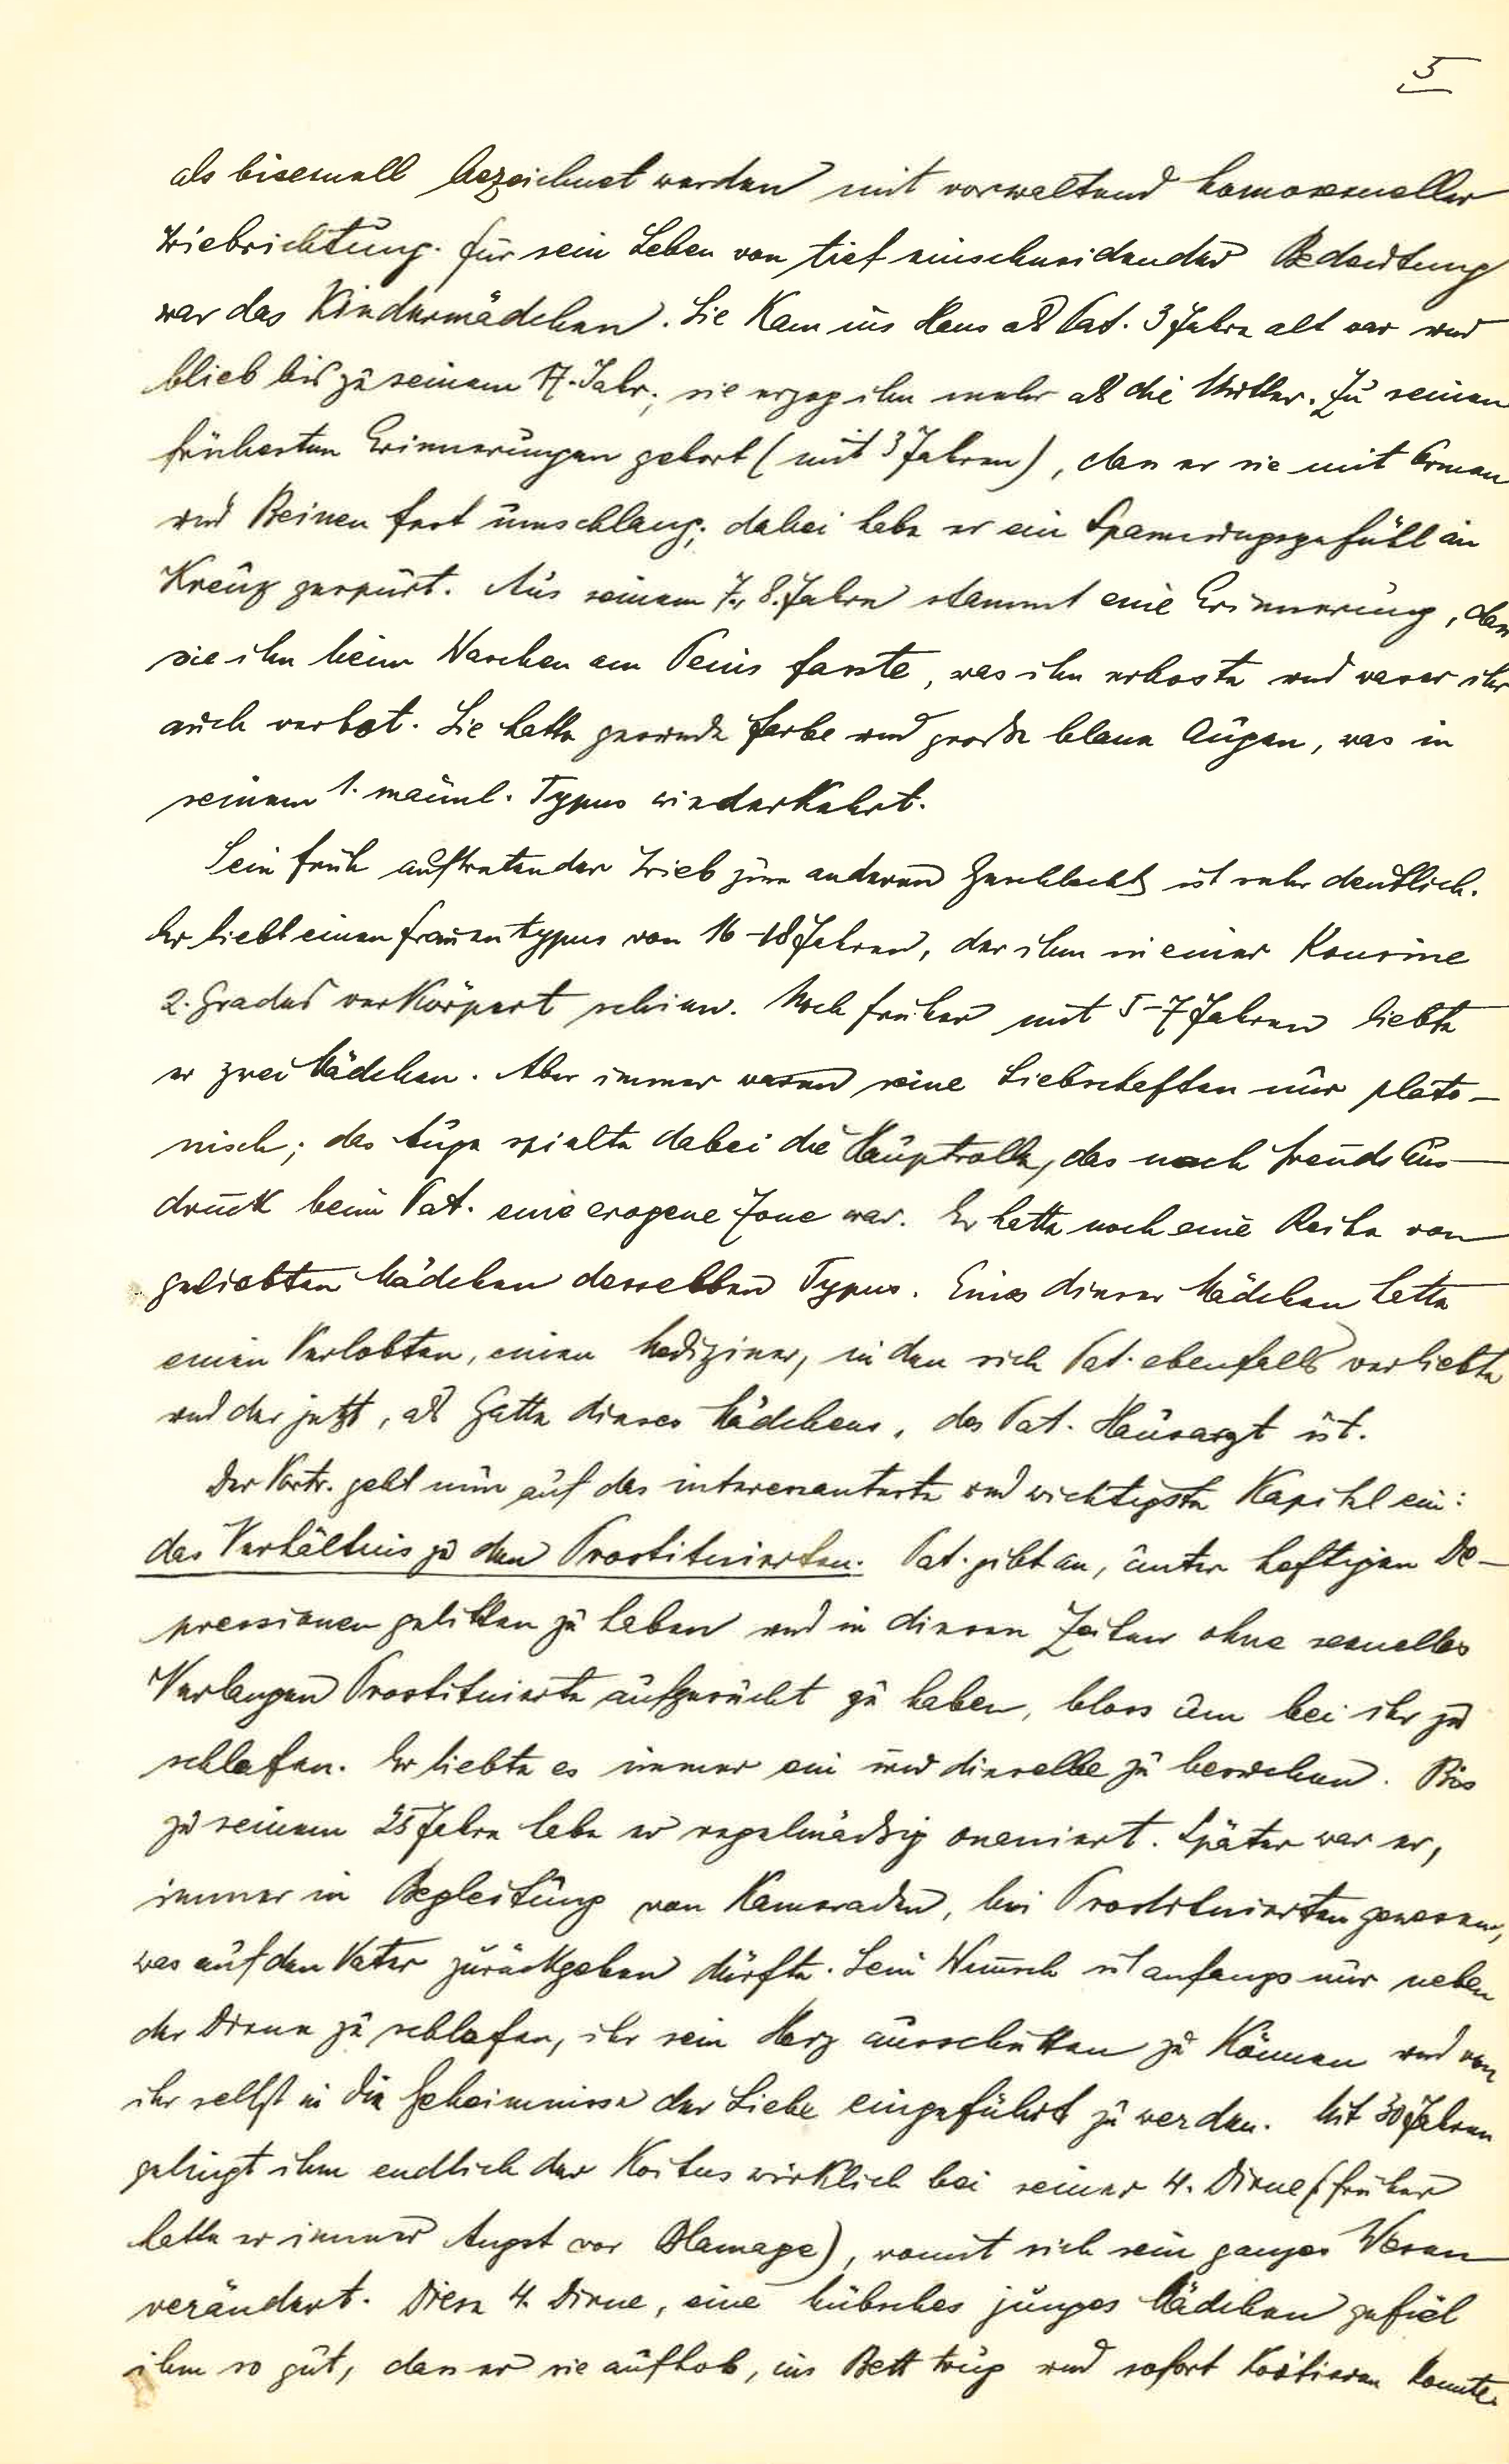 5
als bisexuell bezeichnet werden mit vorwaltend homosexueller
Triebrichtung. Für sein Leben von tief einschneidender Bedeutung
war das Kindermädchen. Sie kam ins Haus als Pat. 3 Jahre alt war und
blieb bis zu seinem 17. Jahr; sie erzog ihn mehr als die Mutter. Zu seinen
frühesten Erinnerungen gehört (mit 3 Jahren), dass er sie mit Armen
und Beinen fest umschlang; dabei habe er ein Spannungsgefühl im
Kreuz gespürt. Aus seinem 7., 8. Jahre stammt eine Erinnerung, dass
sie ihn beim Waschen am Penis fasste, was ihn erboste und was er ihr
auch verbot. Sie hatte gesunde Farbe und große blaue Augen, was in
seinem 1. männl. Typus wiederkehrt.
Sein früh auftretender Trieb zum anderen Geschlecht ist sehr deutlich.
Er liebt einen Frauentypus von 16-18 Jahren, der ihm in einer Kousine
2. Grades verkörpert schien. Noch früher mit 5-7 Jahren liebte
er zwei Mädchen. Aber immer waren seine Liebschaften nur plato-
nisch; das Auge spielte dabei die Hauptrolle, das nach Freuds Aus-
druck beim Pat. eine erogene Zone war. Er hatte noch eine Reihe von
geliebten Mädchen desselben Typus. Eines dieser Mädchen hatte
einen Verlobten, einen Mediziner, in den sich Pat. ebenfalls verliebte
und der jetzt, als Gatte dieses Mädchens, des Pat. Hausarzt ist.
Der Vortr. geht nun auf das interessanteste und wichtigste Kapitel ein:
das Verhältnis zu den Prostituierten. Pat. gibt an, unter heftigen De-
pressionen gelitten zu haben und in diesen Zeiten ohne sexuelles
Verlangen Prostituierte aufgesucht zu haben, bloss um bei ihr zu
schlafen. Er liebte es immer ein und dieselbe zu besuchen. Bis
zu seinem 25 Jahre habe er regelmäßig onaniert. Später war er,
immer in Begleitung von Kameraden, bei Prostituierten gewesen,
was auf den Vater zurückgehen dürfte. Sein Wunsch ist anfangs nur neben
der Dirne zu schlafen, ihr sein Herz ausschütten zu können und von
ihr selbst in die Geheimnisse der Liebe eingeführt zu werden. Mit 30 Jahren
gelingt ihm endlich der Koitus wirklich bei seiner 4. Dirne (früher
hatte er immer Angst vor Blamage), womit sich sein ganzes Wesen
verändert. Diese 4. Dirne, eine hübsches junges Mädchen gefiel
ihm so gut, dass er sie aufhob, ins Bett trug und sofort koitieren konnte.